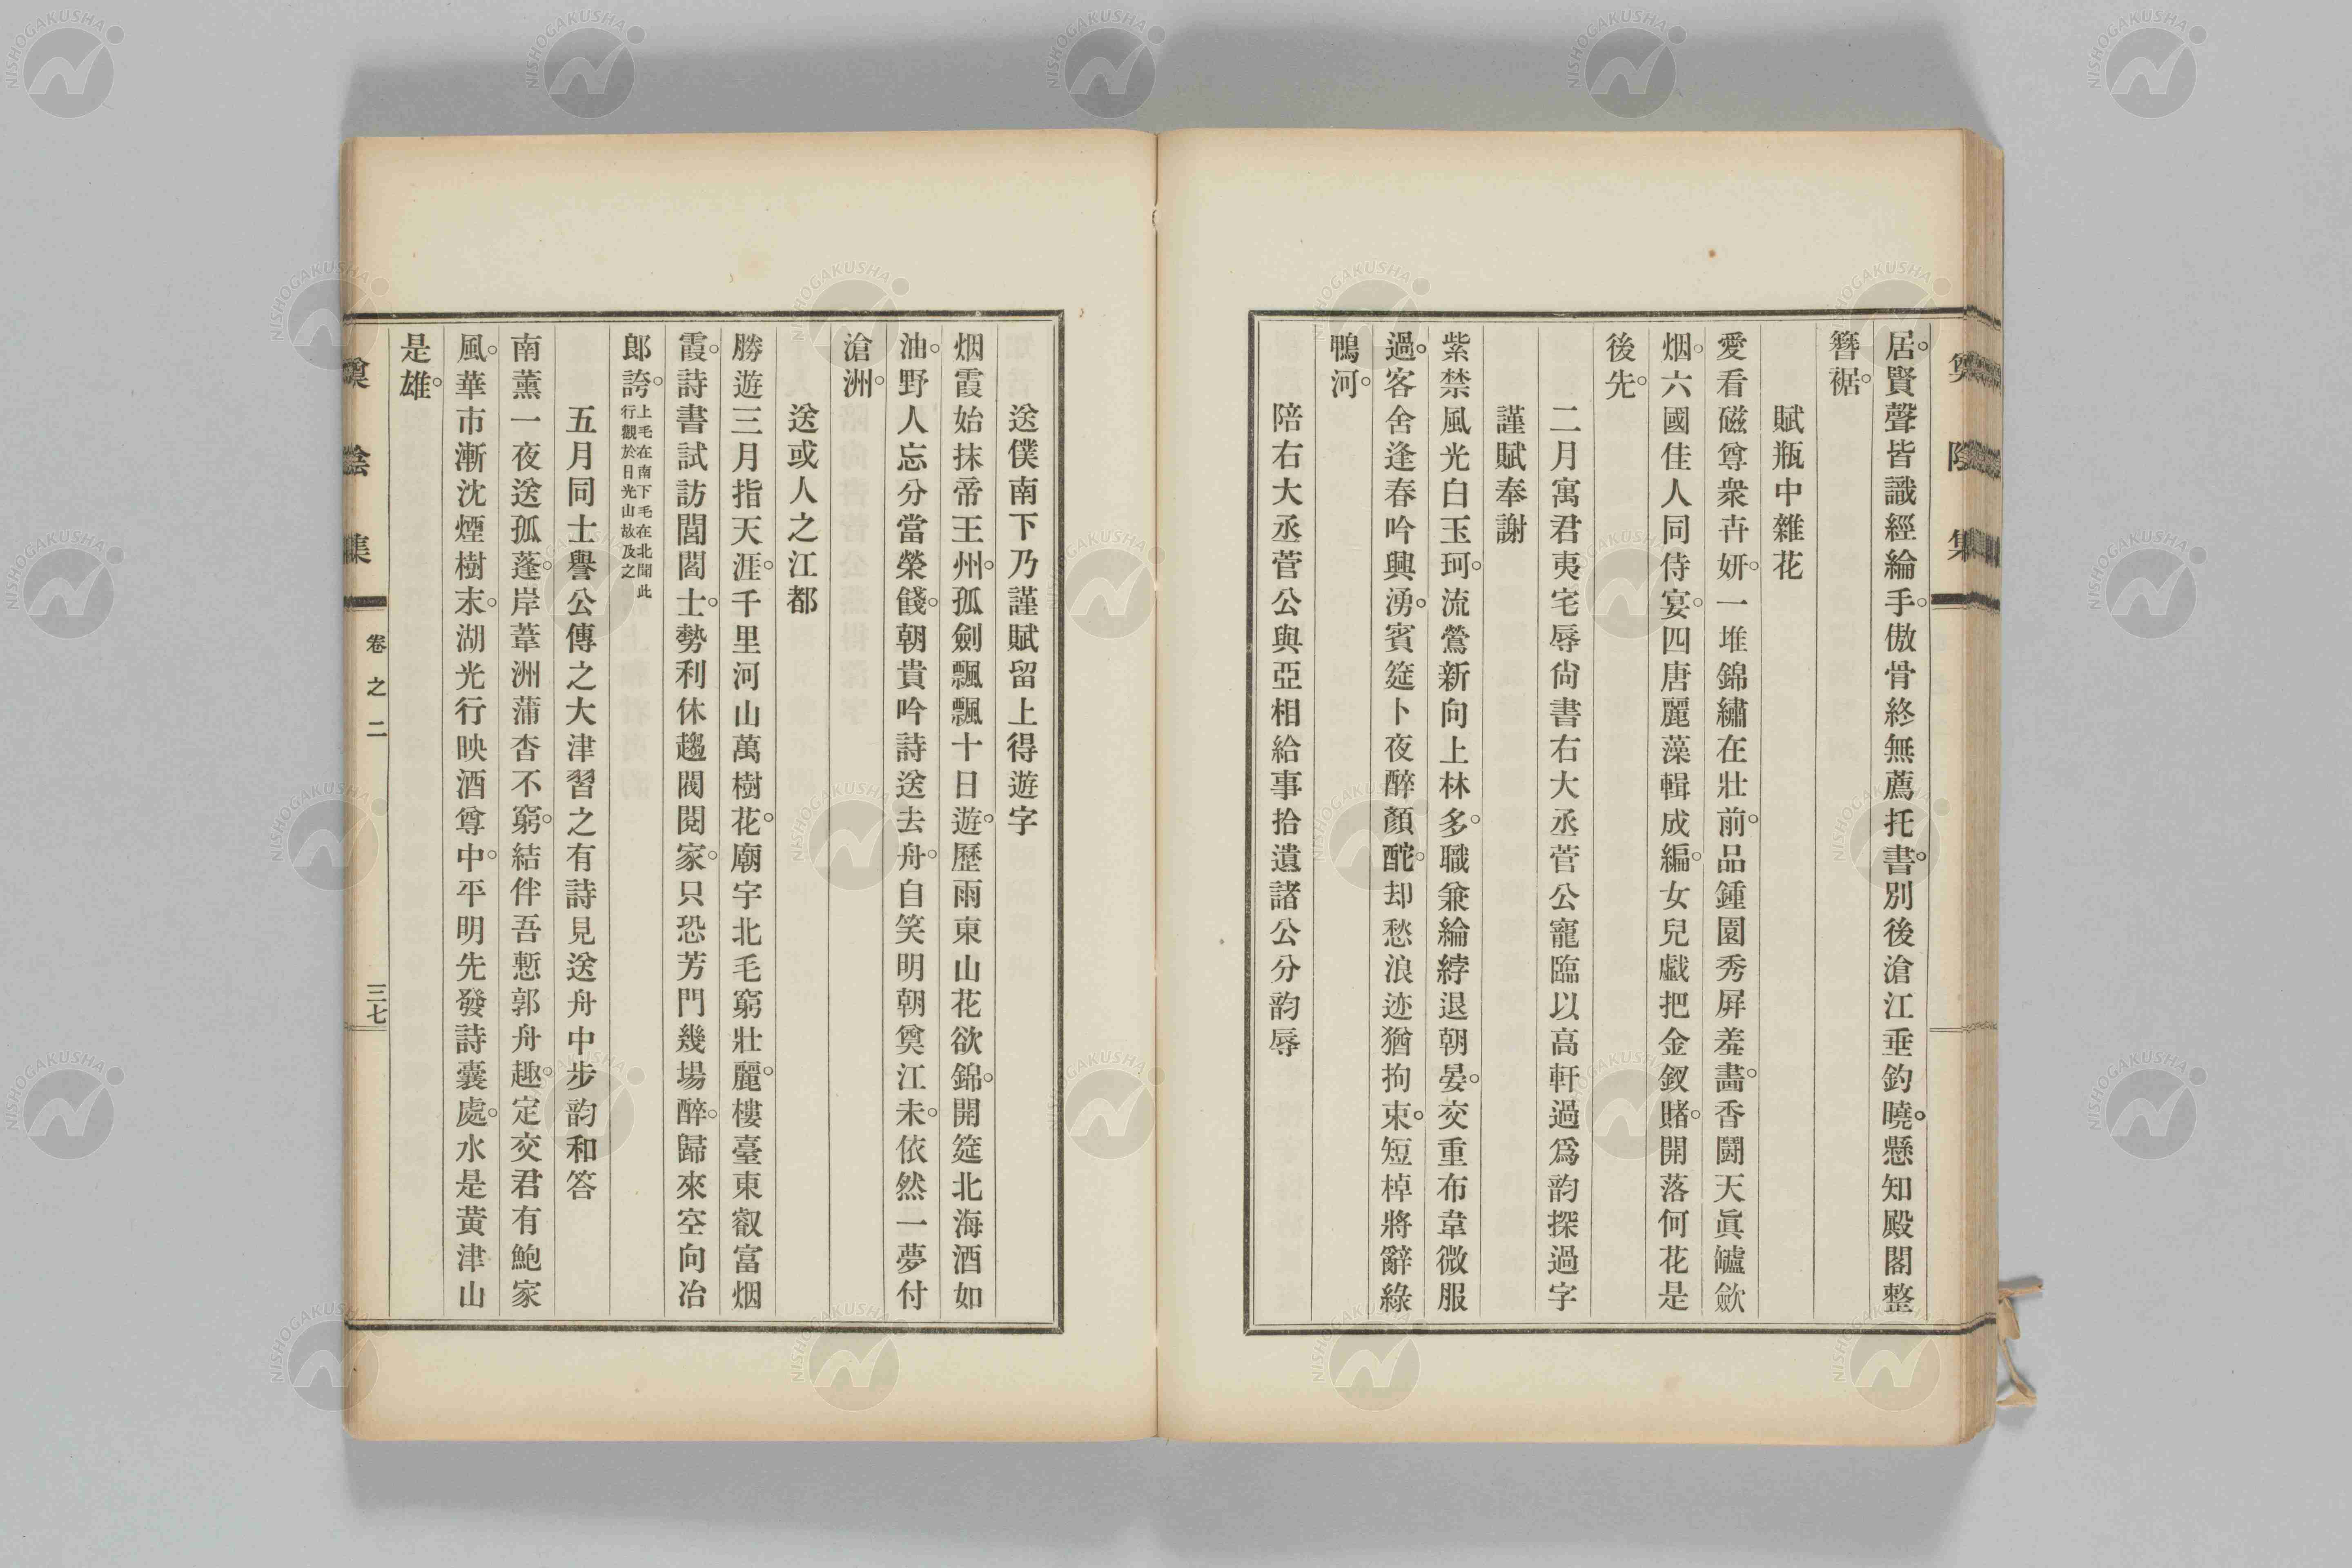 奠陰集
居。賢聲皆識經綸手。傲骨終無薦托書。別後滄江垂釣曉。懸知殿閣整
簪裾。
賦瓶中雜花
愛看磁尊衆卉妍。一堆錦繡在壯前。品鍾園秀屛羞畵。香鬪天眞罏歛
烟。六國佳人同侍宴。四唐麗藻輯成編。女兒戯把金釵賭。開落何花是
後先。
二月寓君夷宅辱尙書右大丞菅公寵臨以高軒過爲韵探過字
謹賦奉謝
紫禁風光白玉珂。流鶯新向上林多。職兼綸綍退朝晏。交重布韋微服
過。客舍逢春吟興湧。賓筵卜夜醉顏酡。却愁浪迹猶拘束。短棹將辭綠
鴨河。
陪右大丞菅公與亞相給事拾遺諸公分韵辱
送僕南下乃謹賦留上得遊字
烟霞始抹帝王州。孤劍飄飄十日遊。歷雨東山花欲錦。開筵北海酒如
油。野人忘分當榮餞。朝貴吟詩送去舟。自笑明朝奠江未。依然一夢付
滄洲。
送或人之江都
勝遊三月指天涯。千里河山萬樹花。廟宇北毛窮壯麗。樓臺東叡富烟
霞。詩書試訪閭閻士。勢利休趨閥閱家。只恐芳門幾場醉。歸來空向冶
郞誇。上毛在南下毛在北聞此
行觀於日光山故及之
五月同士譽公傳之大津習之有詩見送舟中步韵和答
南薰一夜送孤蓬。岸葦洲蒲杳不窮。結伴吾慙郭舟趣。定交君有鮑家
風。華市漸沈煙樹末。湖光行映酒尊中。平明先發詩囊處。水是黃津山
是雄。
奠陰集
卷之二
三七